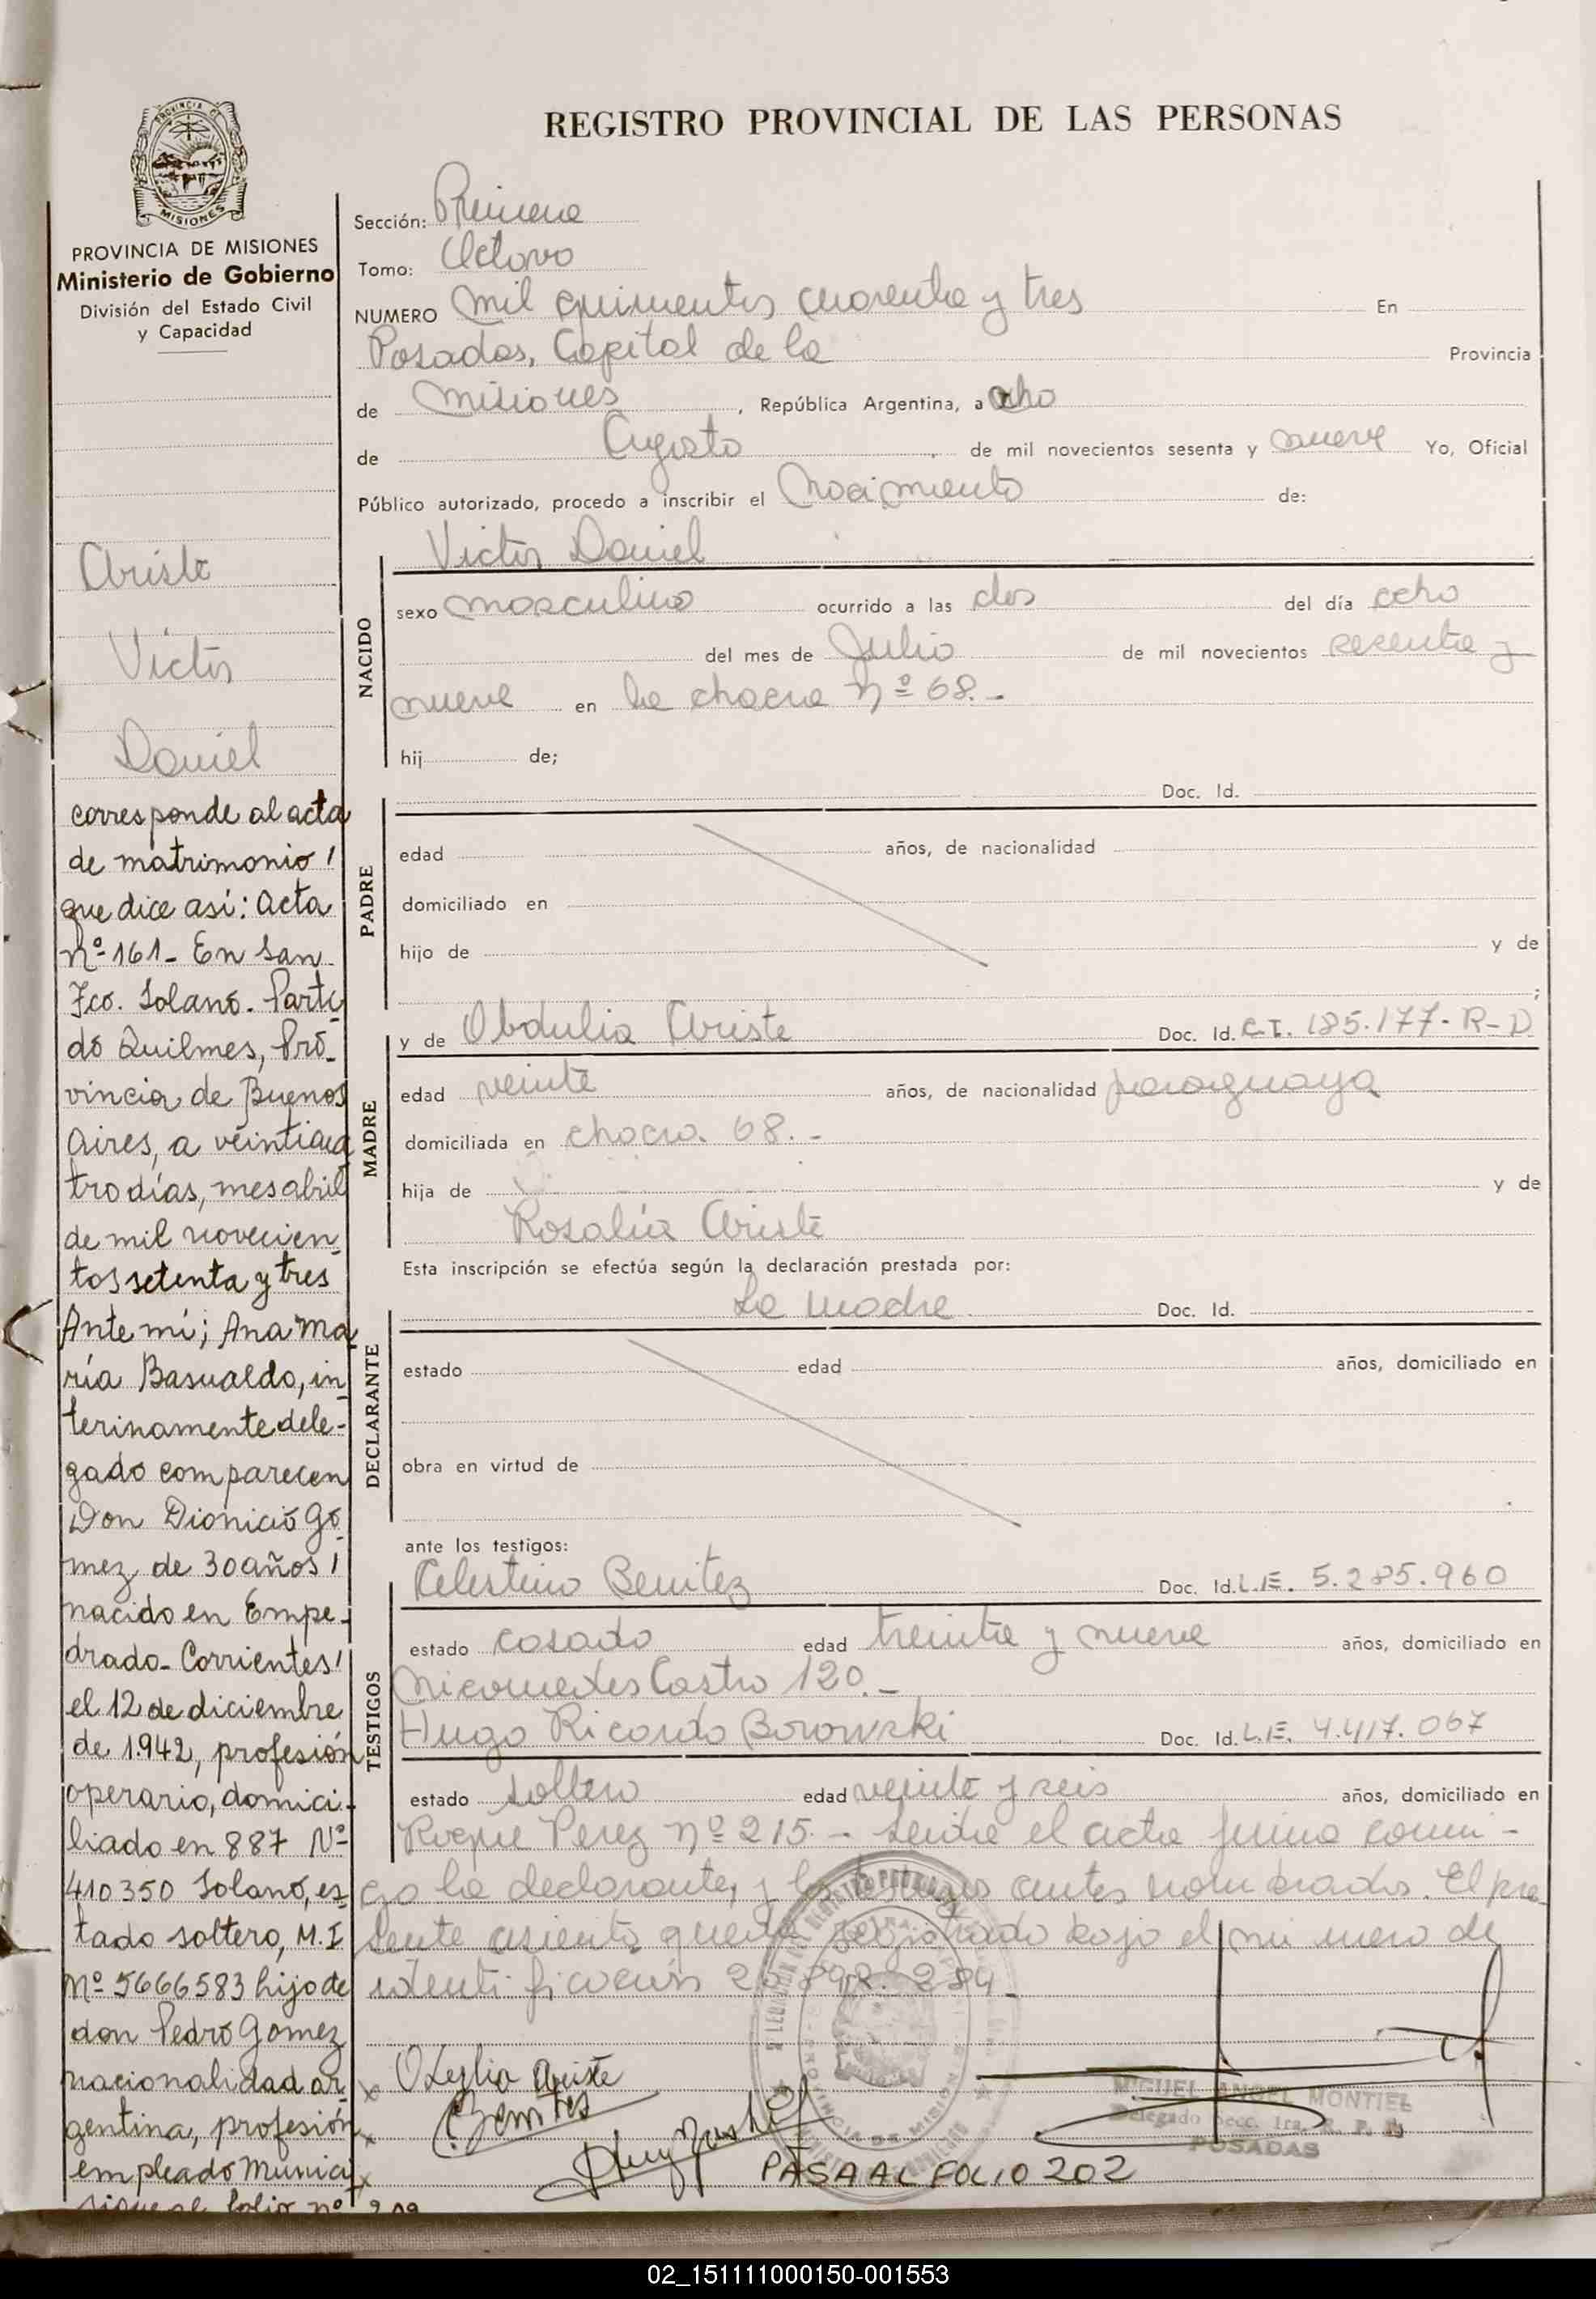 REGISTRO PROVINCIAL DE LAS PERSONAS
PROVINCIA DE MISIONES
Ministerio de Gobierno
División del Estado Civil
y Capacidad
Ariste
Victor
Daniel
corresponde al acta
de matrimonio
que dice así: Acta
nº 161 - En San
Fco. Solano. Parti
do Quilmes, Pro-
vincia de Buenos
Aires, a veinticua
tro días, mes abril
de mil novecien
tos setenta y tres
Ante mí; Ana Ma
ría Basualdo, in
terinamente dele-
gado comparecen
Don Dionicio Go
mez de 30 años
nacido en Empe-
drado - Corrientes
el 12 de diciembre
de 1.942, profesión
operario, domici-
liado en 887 Nº
410 350 Solano, es
tado soltero, M.I
Nº 5666583 hijo de
don Pedro Gomez
nacionalidad ar
gentina, profesión
empleado Munici
sigue al folio nº 202
Sección: Primera
Tomo: Octavo
NUMERO mil quinientos cuarenta y tres En
Posadas, Capital de la Provincia
de Misiones, República Argentina, a ocho
de Agosto de mil novecientos sesenta y nueve Yo, Oficial
Público autorizado, procedo a inscribir el nacimiento de:
NACIDO
Victor Daniel
sexo masculino ocurrido a las dos del día ocho
del mes de Julio de mil novecientos sesenta y
nueve en la chacra nº 68.-
hij de;
PADRE
Doc. Id.
edad años, de nacionalidad
domiciliado en
hijo de y de
;
MADRE
y de Obdulia Ariste Doc. Id. C.I. 185.177-R-D
edad veinte años, de nacionalidad paraguaya
domiciliada en chacra 68.-
hija de y de
Rosalía Ariste
Esta inscripción se efectúa según la declaración prestada por:
DECLARANTE
La madre Doc. Id.
estado edad años, domiciliado en
obra en virtud de
ante los testigos:
TESTIGOS
Celestino Benitez Doc. Id. L.E. 5.285.960
estado casado edad treinta y nueve años, domiciliado en
Nicomedes Castro 120.-
Hugo Ricardo Borowski Doc. Id. L.E. 4.417.067
estado soltero edad veinte y seis años, domiciliado en
Roque Perez nº 215.- Leída el acta firma conmi-
go la declarante, y los testigos antes nombrados. El pre
sente asiento queda registrado bajo el número de
identificación
Ariste
Benites
MIGUEL ANGEL MONTIEL
Delegado Secc. 1ra. R. P.
POSADAS
PASA AL FOLIO 202
02_151111000150-001553